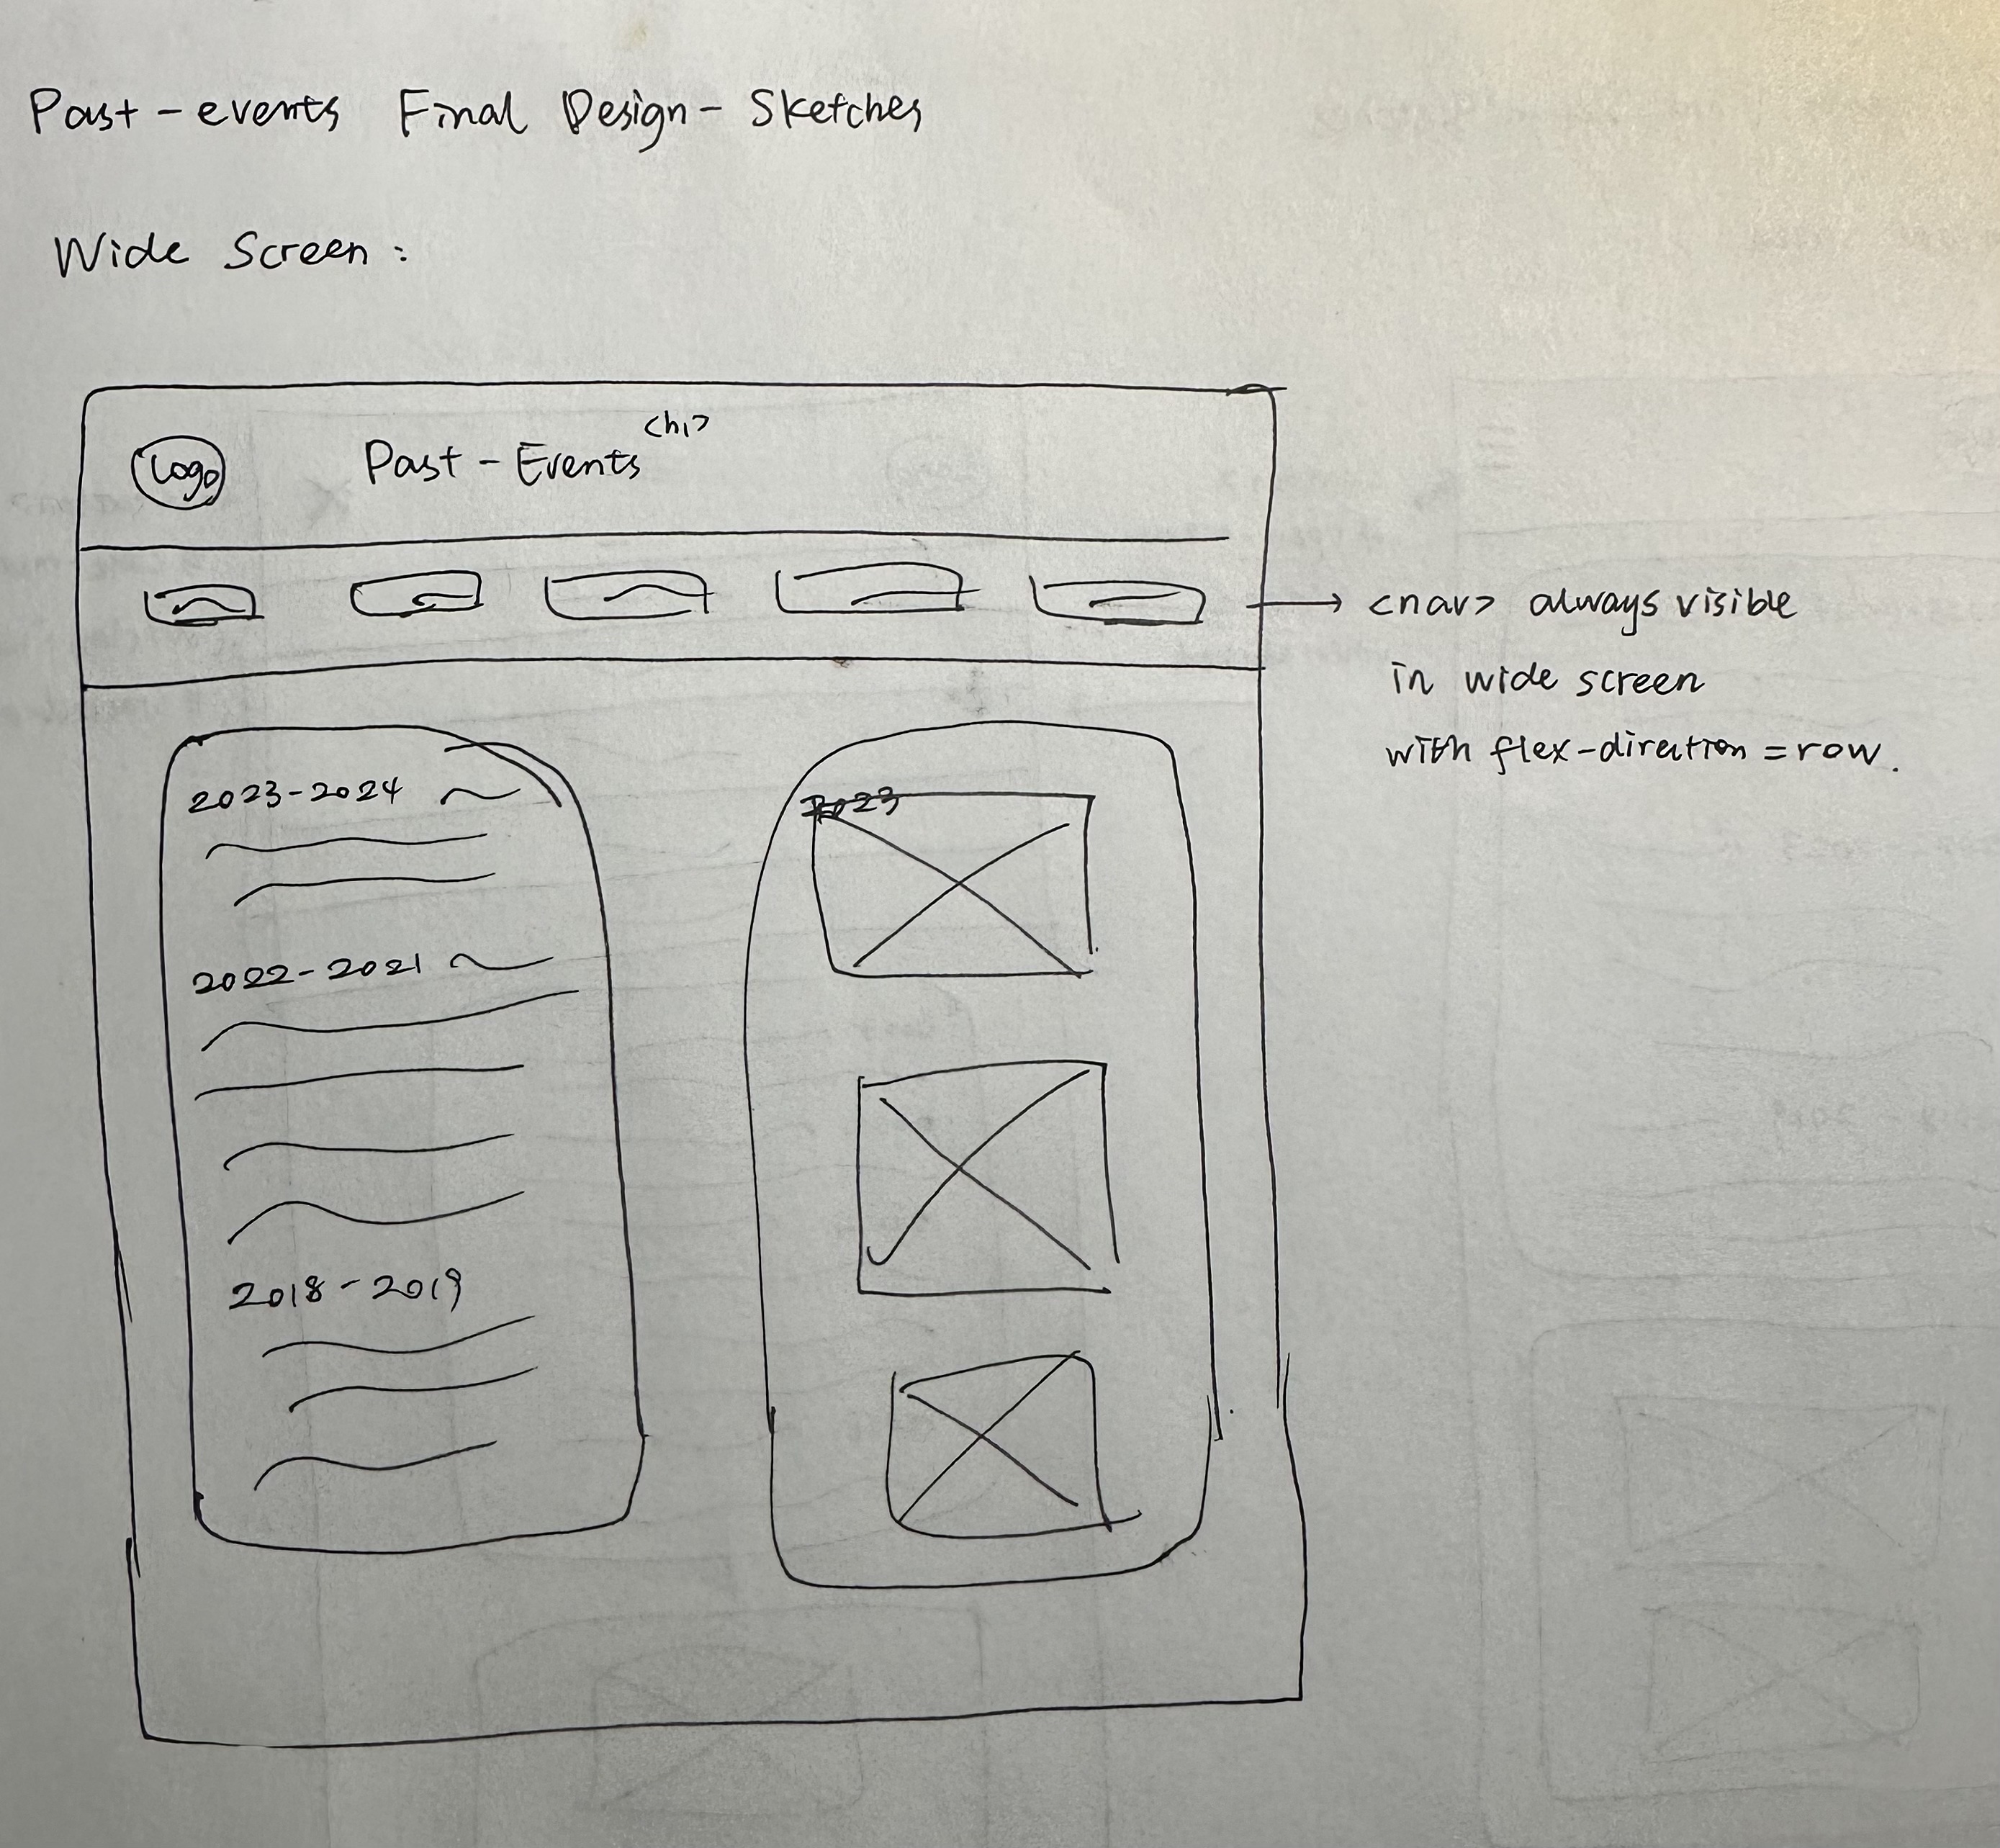 Past-events Final Design- Sketches
Wide Screen:
<h1>
Logo Past-Events
<nav> always visible
in wide screen
with flex-direction=row.
2023-2024
2022-2021
2018-2019